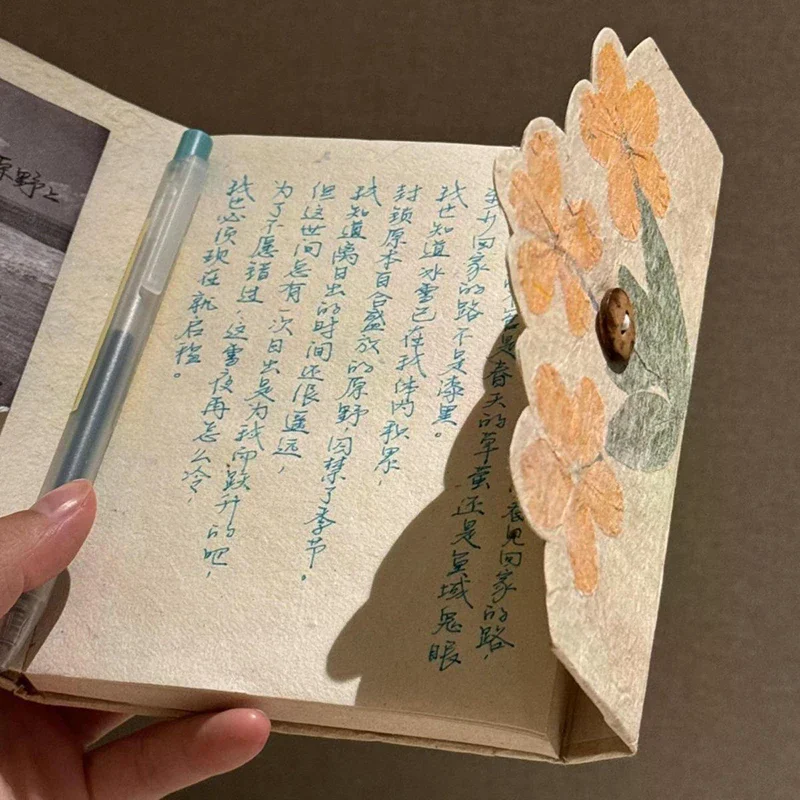 回家的路，
是春天的草萤还是
域鬼眼
回家的路不是漆黑。
我也知道冰雪已在我体内积累，
封锁原本百合盛放的原野，囚禁了季节。
我知道离日出的时间还很遥远，
但这世间总有一次日出是为我而跃升的吧，
为了不愿错过，这雪夜再怎么冷，
我也必须现在就启程。
原野上